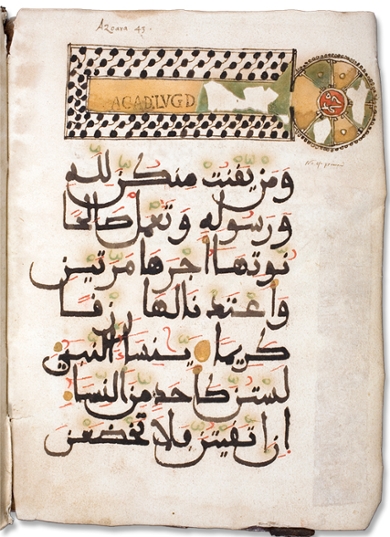 Azoara 43.
ACAD. LVGD
ومن يقنت منكن لله
ورسوله وتعمل صالحا
نوتها اجرها مرتين
واعتدنا لها رزقا
كريما ينسا النبي
لستن كاحد من النسا
ان اتقيتن فلا تخضعن